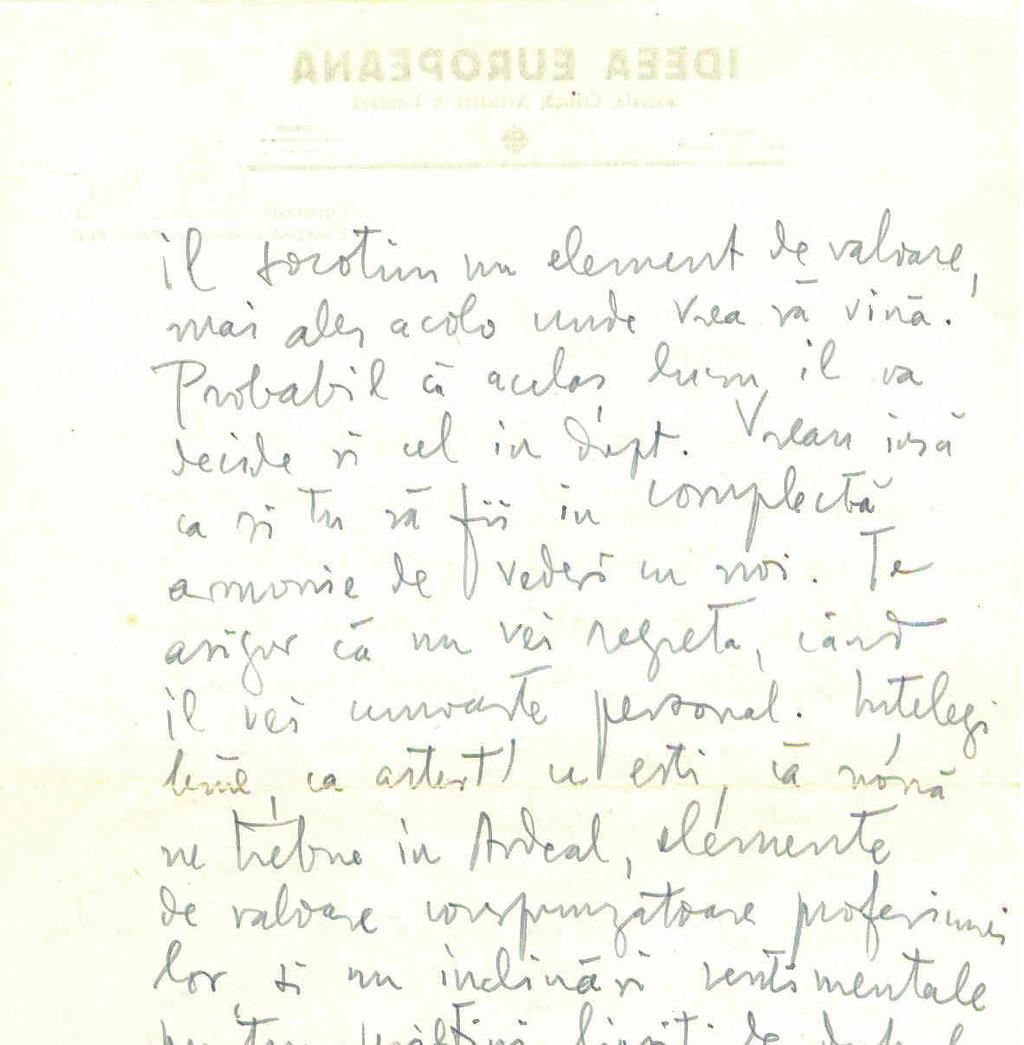 IDEEA EUROPEANA
il socotim un element de valoare,
mai ales acolo unde vrea să vină.
Probabil că acelaș lucru il va
decide și cel in drept. Vreau insă
ca și tu să fii in complectă
armonie de vederi cu noi. Te
asigur că nu vei regreta, când
il vei cunoaște personal. Intelegi
bine, ca artist ce esti, că nouă
ne trebue in Ardeal, elemente
de valoare corespunzătoare profesiunei
lor, si nu inclinări sentimentale
pentru de